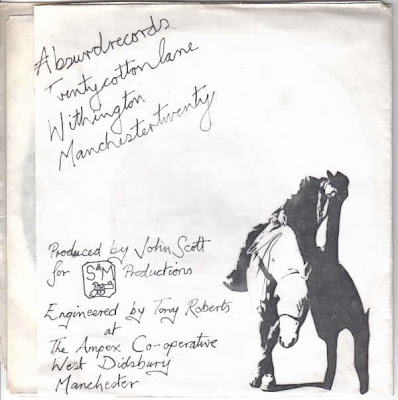 Absurdrecords
Twentycottonlane
Withington
Manchestertwenty
Produced by John Scott
for S&M Productions
Engineered by Tony Roberts
at
The Ampex Co-operative
West Didsbury
Manchester